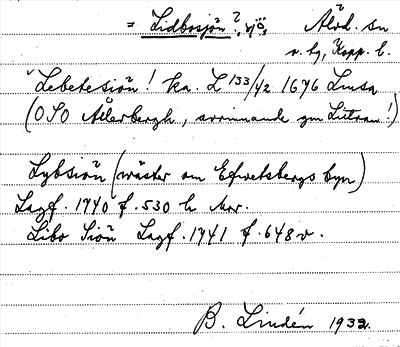 = Lidbosjön?, sjö, Älvd. sn
v. hg, Kopp. l.
Lebetesiön! ka. L 133/42 1696 Lmsa
(OSO Ållerbergh, rinnande gm Litran!)
Lybsiön (wäster om Efwertsbergs byn)
Lagf. 1740 f. 530 h Mor.
Libo Siön Lagf. 1741 f. 648 v.
B. Lindén 1932.